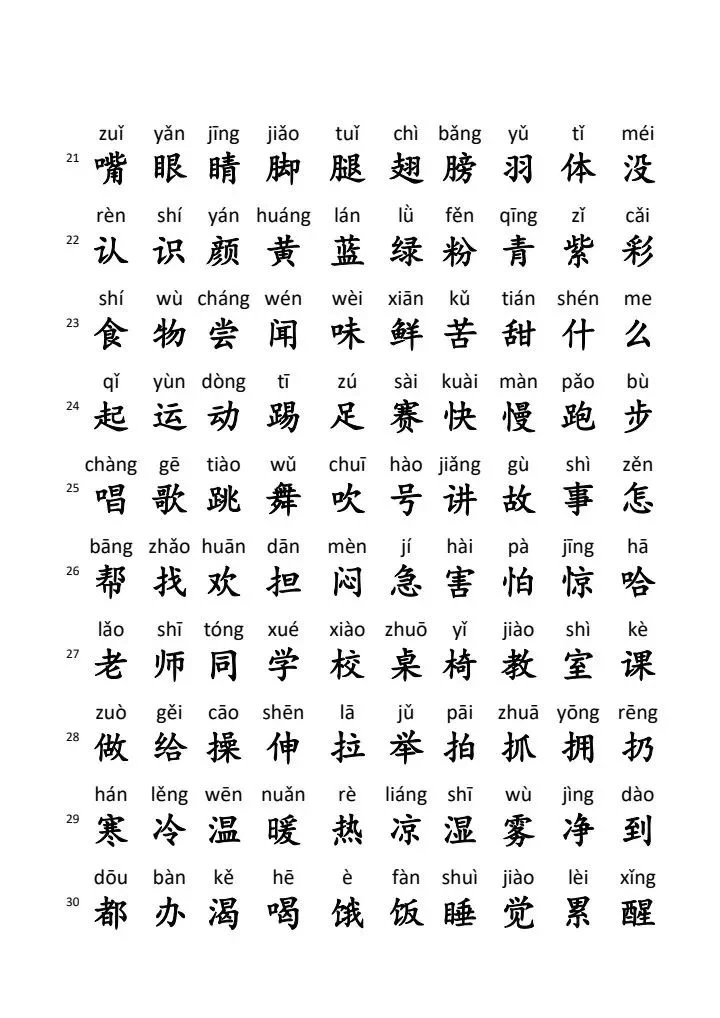 zuǐ yǎn jīng jiǎo tuǐ chì bǎng yǔ tǐ méi
21 嘴 眼 睛 脚 腿 翅 膀 羽 体 没
rèn shí yán huáng lán lǜ fěn qīng zǐ cǎi
22 认 识 颜 黄 蓝 绿 粉 青 紫 彩
shí wù cháng wén wèi xiān kǔ tián shén me
23 食 物 尝 闻 味 鲜 苦 甜 什 么
qǐ yùn dòng tī zú sài kuài màn pǎo bù
24 起 运 动 踢 足 赛 快 慢 跑 步
chàng gē tiào wǔ chuī hào jiǎng gù shì zěn
25 唱 歌 跳 舞 吹 号 讲 故 事 怎
bāng zhǎo huān dān mèn jí hài pà jīng hā
26 帮 找 欢 担 闷 急 害 怕 惊 哈
lǎo shī tóng xué xiào zhuō yǐ jiào shì kè
27 老 师 同 学 校 桌 椅 教 室 课
zuò gěi cāo shēn lā jǔ pāi zhuā yōng rēng
28 做 给 操 伸 拉 举 拍 抓 拥 扔
hán lěng wēn nuǎn rè liáng shī wù jìng dào
29 寒 冷 温 暖 热 凉 湿 雾 净 到
dōu bàn kě hē è fàn shuì jiào lèi xǐng
30 都 办 渴 喝 饿 饭 睡 觉 累 醒